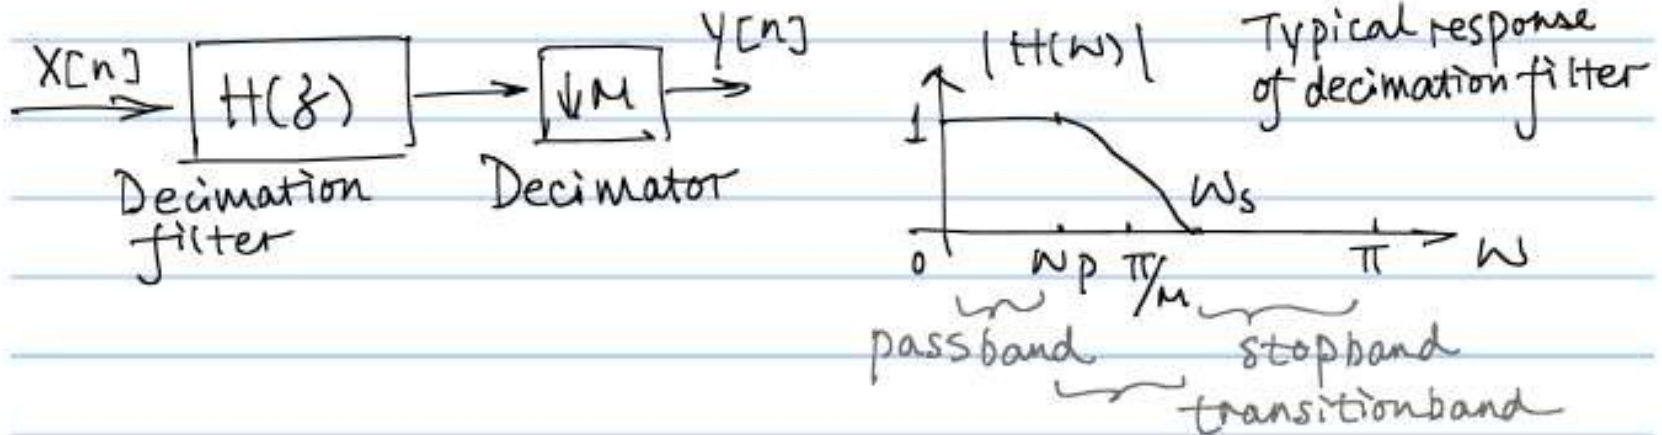 X[n]
H(z)
↓M
Y[n]
Decimation
filter
Decimator
|H(ω)|
Typical response
of decimation filter
1
ωs
0
ωp
π/M
π
ω
passband
stopband
transitionband